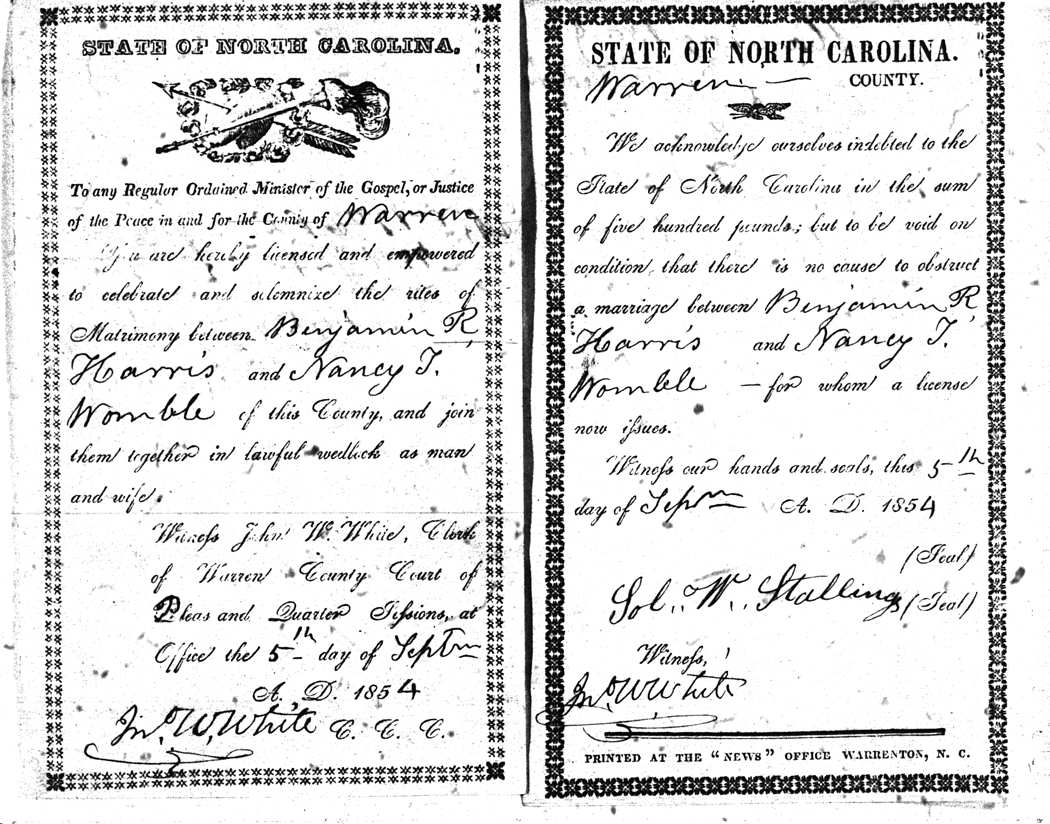 STATE OF NORTH CAROLINA.
To any Regular Ordained Minister of the Gospel, or Justice
of the Peace in and for the County of Warren
You are hereby licensed and empowered
to celebrate and solemnize the rites of
Matrimony between Benjamin R.
Harris and Nancy T.
Womble of this County, and join
them together in lawful wedlock as man
and wife.
Witness John W. White, Clerk
of Warren County Court of
Pleas and Quarter Sessions, at
Office the 5th day of Septm
A. D. 1854
Jno. W. White C. C. C.
STATE OF NORTH CAROLINA.
Warren COUNTY.
We acknowledge ourselves indebted to the
State of North Carolina in the sum
of five hundred pounds; but to be void on
condition that there is no cause to obstruct
a marriage between Benjamin R
Harris and Nancy T.
Womble — for whom a license
now issues.
Witness our hands and seals, this 5th
day of Septm A. D. 1854
(Seal)
Sol. W. Stallings (Seal)
Witness,
Jno. W White
PRINTED AT THE "NEWS" OFFICE WARRENTON, N. C.